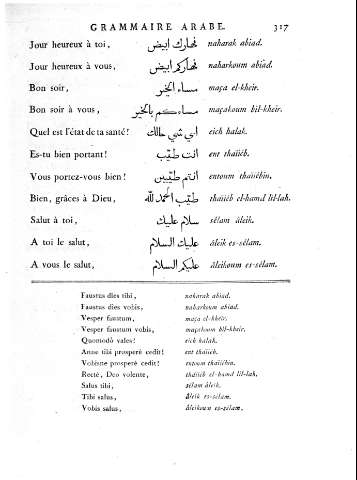 GRAMMAIRE ARABE. 317
Jour heureux à toi, نهارك ابيض naharak abiad.
Jour heureux à vous, نهاركم ابيض naharkoum abiad.
Bon soir, مساء الخير maça el-kheir.
Bon soir à vous, مساءكم بالخير maçakoum bil-kheir.
Quel est l'état de ta santé! اي شي حالك eich halak.
Es-tu bien portant! انت طيّب ent thaïïéb.
Vous portez-vous bien! انتم طيّبين entoum thaïïébin.
Bien, grâces à Dieu, طيّب الحمد لله thaïïéb el-hamd lil-lah.
Salut à toi, سلام عليك sélam âleik.
A toi le salut, عليك السلام âleik es-sélam.
A vous le salut, عليكم السلام âleikoum es-sélam.
Faustus dies tibi, naharak abiad.
Faustus dies vobis, naharkoum abiad.
Vesper faustum, maça el-kheir.
Vesper faustum vobis, maçakoum bil-kheir.
Quomodò vales! eich halak.
Anne tibi prosperè cedit! ent thaïïéb.
Vobisne prosperè cedit! entoum thaïïébin.
Rectè, Deo volente, thaïïéb el-hamd lil-lah.
Salus tibi, sélam âleik.
Tibi salus, âleik es-sélam.
Vobis salus, âleikoum es-sélam.